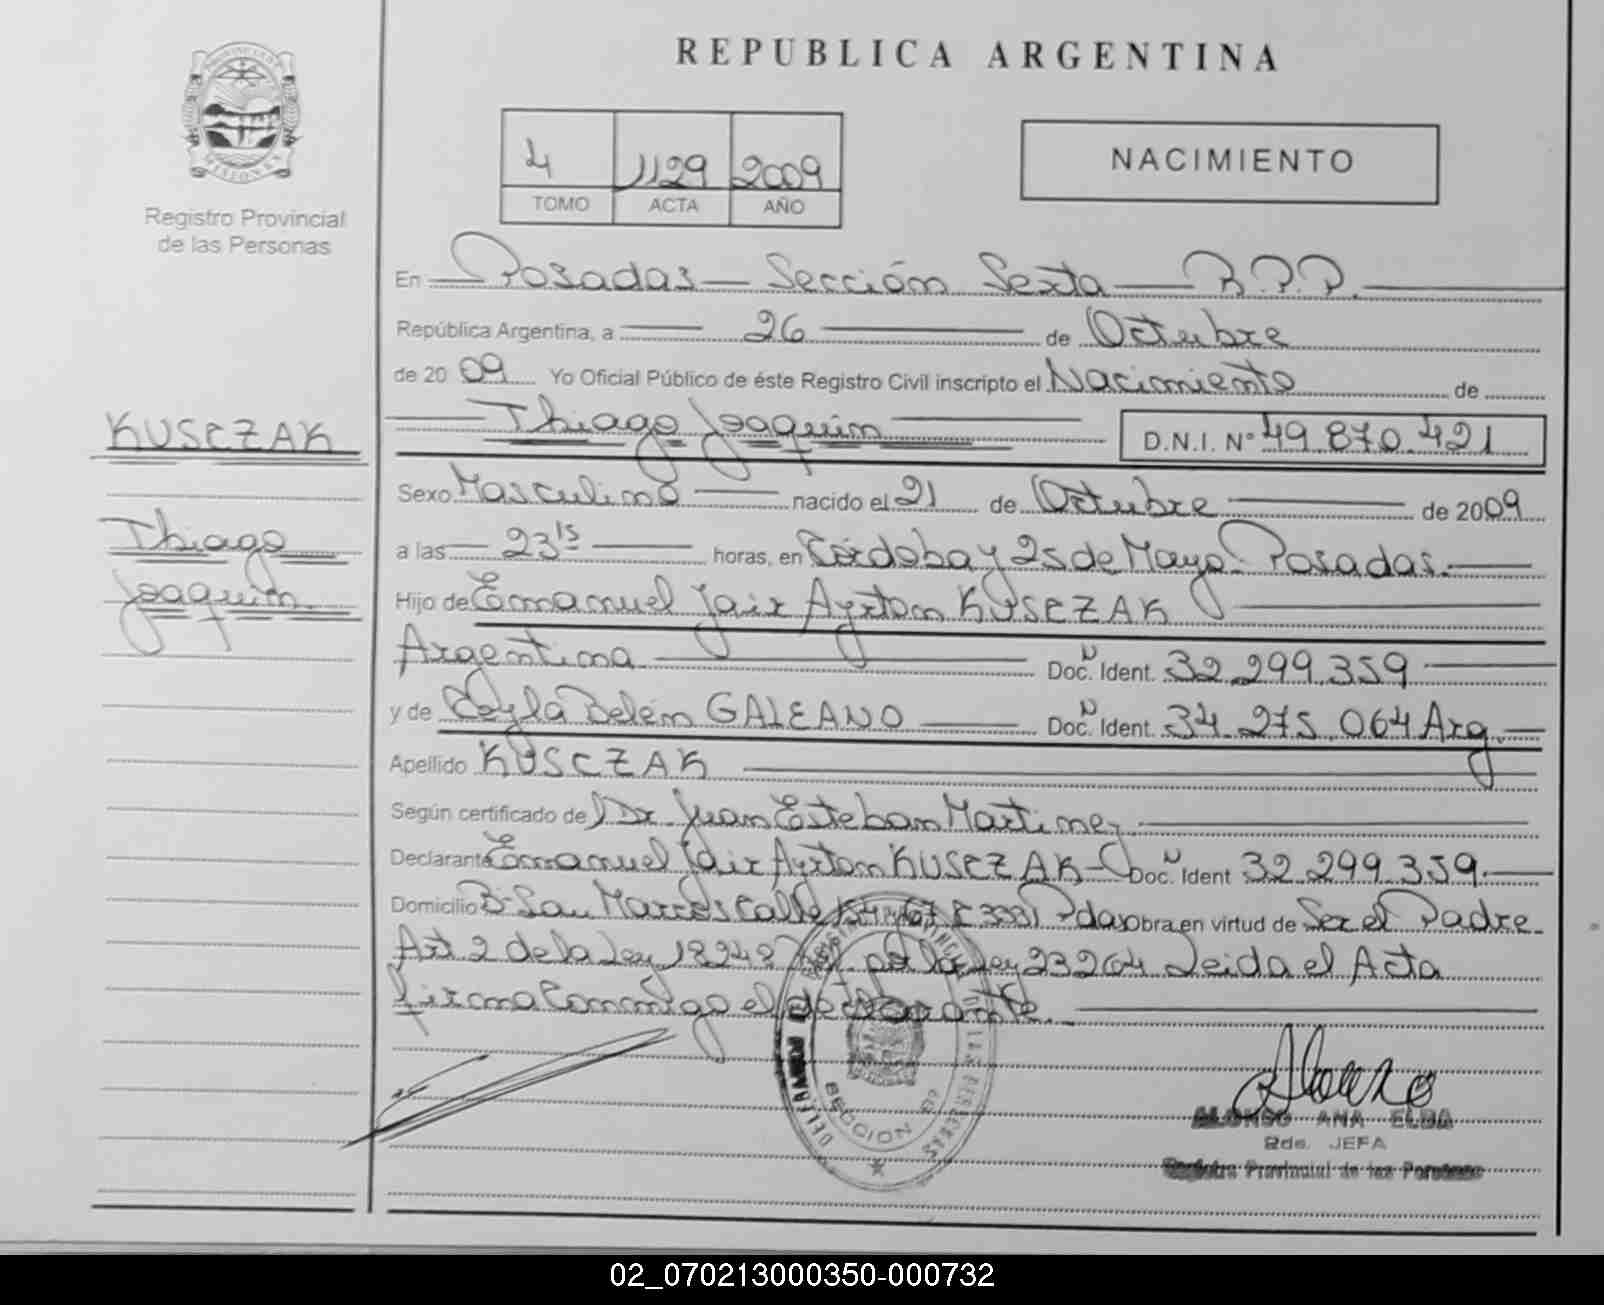 REPUBLICA ARGENTINA
PROVINCIA DE
MISIONES
Registro Provincial
de las Personas
4 1129 2009
TOMO ACTA AÑO
NACIMIENTO
En Posadas — Sección Sexta — R.P.P.
República Argentina, a 26 de Octubre
de 2009 Yo Oficial Público de éste Registro Civil inscripto el Nacimiento de
KUSCZAK
Thiago Joaquín
Thiago Joaquin D.N.I. Nº 49.870.421
Sexo Masculino nacido el 21 de Octubre de 2009
a las 23 15 horas, en Córdoba y 25 de Mayo - Posadas.
Hijo de Emanuel Jair Ayrton KUSCZAK
Argentina Doc. N Ident. 32.299.359
y de Leyla Belén GALEANO Doc. N Ident. 34.275.064 Arg.
Apellido KUSCZAK
Según certificado de Dr. Juan Esteban Martinez
Declarante Emanuel Jair Ayrton KUSCZAK - Doc. N Ident 32.299.359.
Domicilio Bº San Marcos Calle Pdas Obra en virtud de Ser el Padre
Art. 2 de la Ley 18248 por la Ley 23264 Leida el Acta
firma Conmigo el declarante.
SECCION
ALONSO ANA ELBA
2da. JEFA
Registro Provincial de las Personas
02_070213000350-000732